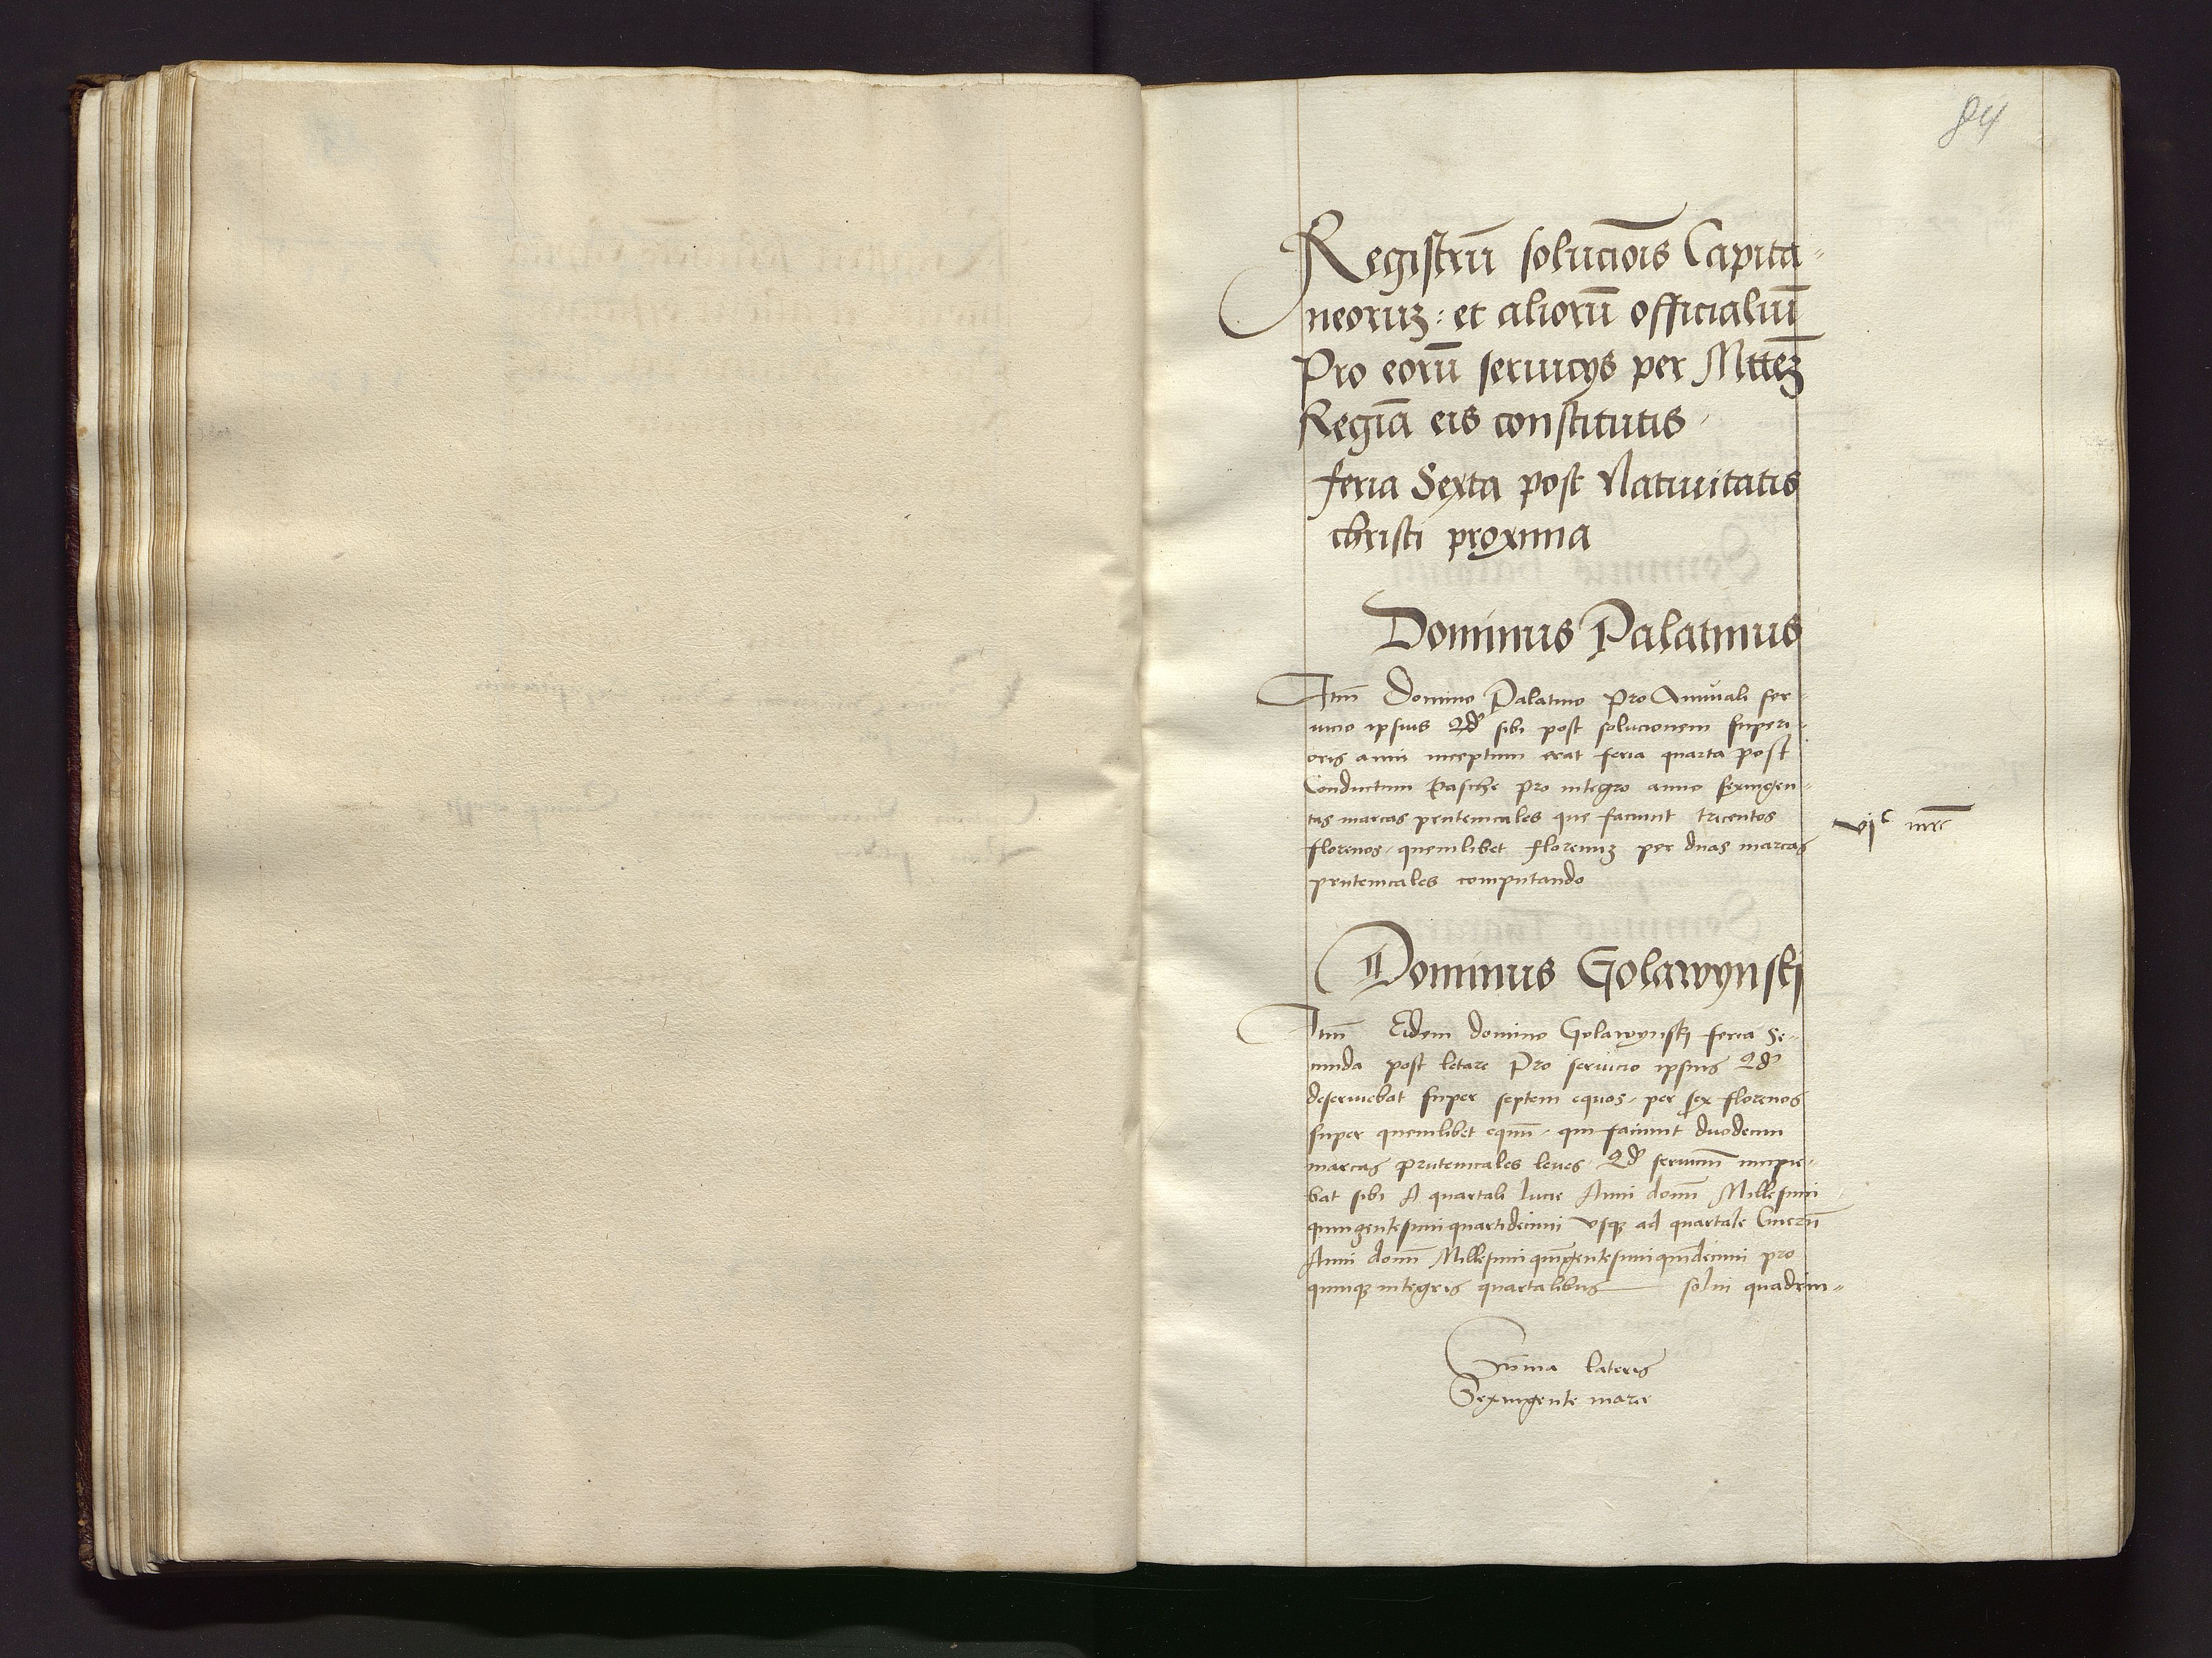 84
Registrū soluciōis Capita-
neoruʒ : et aliorū officialiū
Pro eorū seruicÿs per Mtteʒ
Regiā eis constitutis
feria Sexta post Natiuitatis
christi proxima
Dominus Palatinus
Itm̄ Domino Palatino Pro Annuali ser-
uicio ipsius Qd sibi post solucionem superi-
oris anni inceptum erat feria quarta post
Conductum Pasche pro integro anno sexingen-
tas marcas prutenicales que faciunt tricentos
florenos quemlibet florenuʒ per duas marcas
prutenicales computando
vjᶜ mrc
Dominus Golawynskj
Itm̄ Eidem domino Golawynskj feria Se-
cunda post letare Pro seruicio ipsius Qd
deseruiebat super septem equos per sex florenos
super quemlibet equū qui faciunt duodecim
marcas prutenicales leues Qd seruiciū incipie-
bat sibi A quartali lucie Anni domī Millesimi
quingentesimi quartidecimi vsqʒ ad quartale Cinerū
Anni domī Millesimi quīgentesimi quīdecimi pro
quinqʒ integris quartalibus solui quadrin-
Sūma lateris
Sexingente marce